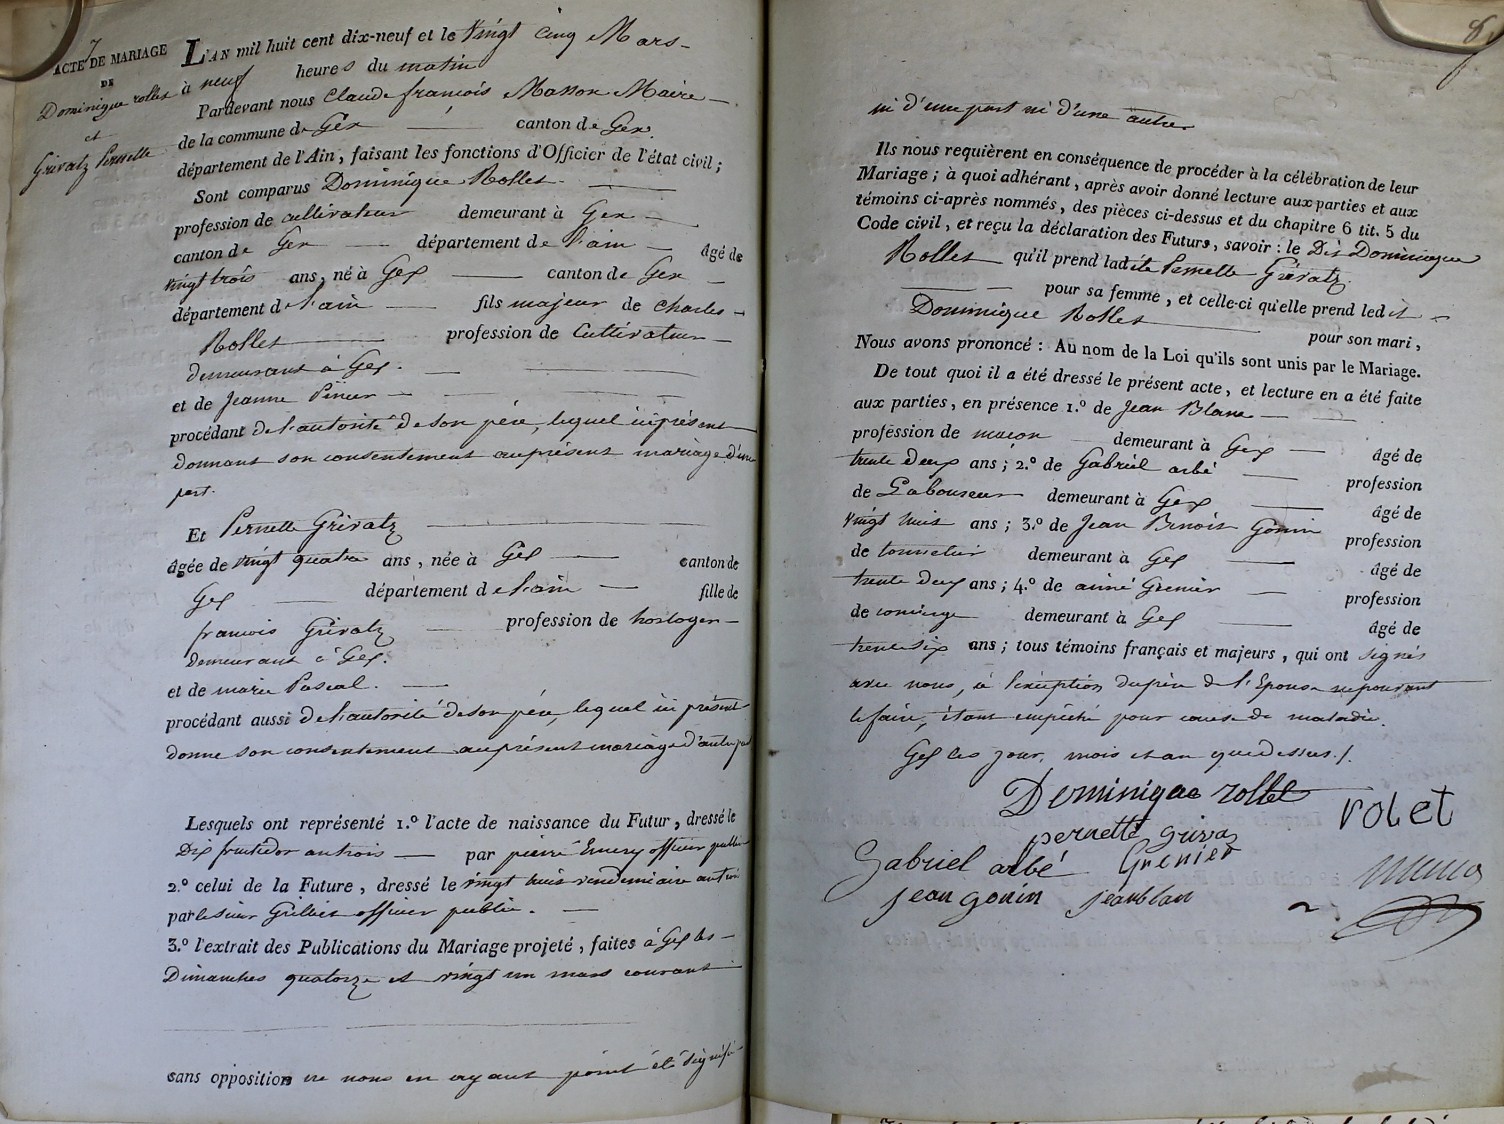 7
ACTE DE MARIAGE
DE
Dominique rollet
et
Grivatz Pernette
L'AN mil huit cent dix-neuf et le Vingt Cinq Mars
à neuf heures du matin
Pardevant nous Claude françois Masson Maire
de la commune de Gex canton de Gex
département de l'Ain, faisant les fonctions d'Officier de l'état civil;
Sont comparus Dominique Rollet
profession de cultivateur demeurant à Gex
canton de Gex département de l'ain âgé de
vingt trois ans, né à Gex canton de Gex
département de l'ain fils majeur de Charles
Rollet profession de Cultivateur
demeurant à Gex.
et de Jeanne
procédant de l'autorité de son père, lequel ici présent
donnant son consentement au présent mariage d'une
part.
Et Pernette Grivatz
âgée de vingt quatre ans, née à Gex canton de
Gex département de l'ain fille de
françois Grivatz profession de horloger
demeurant à Gex.
et de marie Pascal.
procédant aussi de l'autorité de son père, lequel ici présent
donne son consentement au présent mariage d'autre part
Lesquels ont représenté 1.º l'acte de naissance du Futur, dressé le
Dix fructidor an trois par pierre Emery officier public
2.º celui de la Future, dressé le vingt huit vendemiaire an trois
par le sieur officier public.
3.º l'extrait des Publications du Mariage projeté, faites à Gex les
Dimanches quatorze et vingt un mars courant
sans opposition ne nous en ayant point été signifié
8
ni d'une part ni d'une autre
Ils nous requièrent en conséquence de procéder à la célébration de leur
Mariage; à quoi adhérant, après avoir donné lecture aux parties et aux
témoins ci-après nommés, des pièces ci-dessus et du chapitre 6 tit. 5 du
Code civil, et reçu la déclaration des Futurs, savoir: le Dit Dominique
Rollet qu'il prend ladite Pernette Grivatz
pour sa femme, et celle-ci qu'elle prend ledit
Dominique Rollet pour son mari,
Nous avons prononcé: Au nom de la Loi qu'ils sont unis par le Mariage.
De tout quoi il a été dressé le présent acte, et lecture en a été faite
aux parties, en présence 1.º de Jean Blanc
profession de maçon demeurant à Gex âgé de
trente deux ans; 2.º de Gabriel arbé profession
de Laboureur demeurant à Gex âgé de
vingt huit ans; 3.º de Jean Benoit Gonin profession
de tonnelier demeurant à Gex âgé de
trente deux ans; 4.º de aimé Grenier profession
de concierge demeurant à Gex âgé de
trente six ans; tous témoins français et majeurs, qui ont signés
avec nous, à l'exception du père de l'Epouse ne pouvant
le faire, étant empêché pour cause de maladie.
Gex les jour, mois et an que dessus./.
Dominique rollet
rolet
pernette griva
Gabriel arbé Grenier
jean gonin jean blan